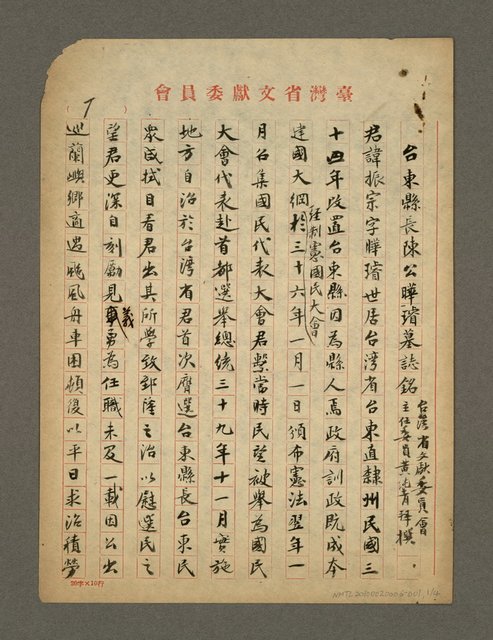 臺灣省文獻委員會
7
台東縣長陳公曄璿墓誌銘
台灣省文獻委員會
主任委員黃純青拜撰
君諱振宗字曄璿世居台灣省台東直隸州民國三
十四年改置台東縣因為縣人焉政府訓政既成本
建國大綱經制憲國民大會於三十六年一月一日頒布憲法翌年一
月召集國民代表大會君繫當時民望被舉為國民
大會代表赴首都選舉總統三十九年十一月實施
地方自治於台湾省君首次膺選台東縣長台東民
眾咸拭目看君出其所學致郅隆之治以慰選民之
望君更深自刻勵見義勇為任職未及一載因公出
巡蘭嶼鄉適遇颱風舟車困頓復以平日求治積勞
20字×10行
NMTL20100020006-001, 1/4